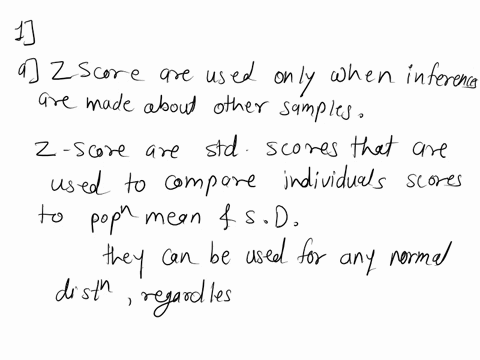 1]
a] Z Score are used only when inferences
are made about other samples.
Z-score are std. scores that are
used to compare individuals scores
to popⁿ mean & S.D.
they can be used for any normal
distⁿ, regardles